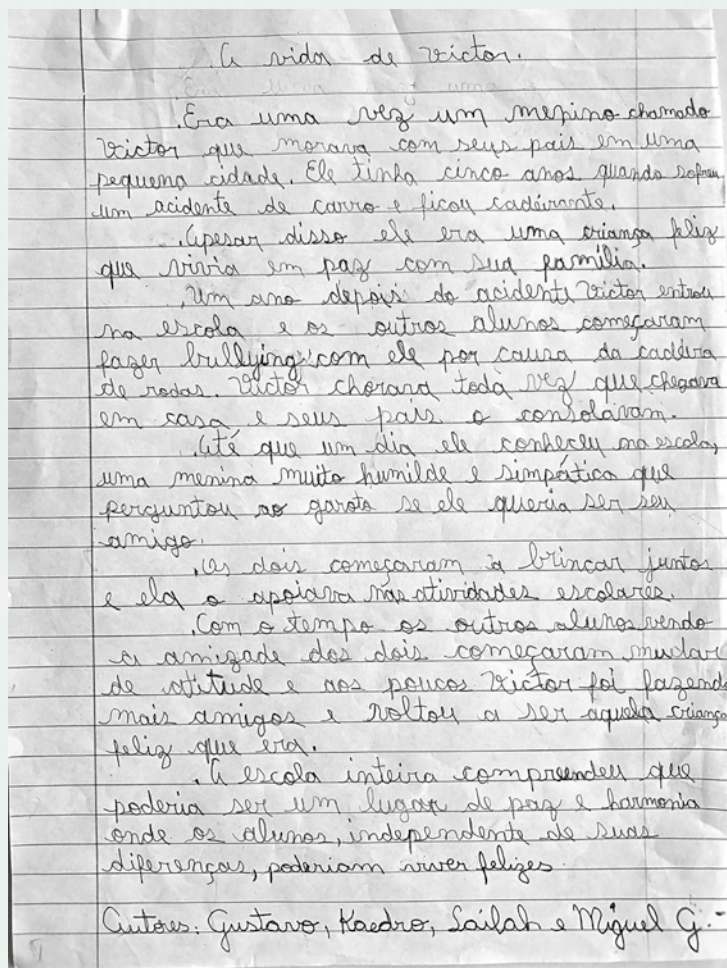 A vida de Victor.
Era uma vez um menino chamado
Victor que morava com seus pais em uma
pequena cidade. Ele tinha cinco anos quando sofreu
um acidente de carro e ficou cadeirante.
Apesar disso ele era uma criança feliz
que vivia em paz com sua família.
Um ano depois do acidente Victor entrou
na escola e os outros alunos começaram
fazer bullying com ele por causa da cadeira
de rodas. Victor chorava toda vez que chegava
em casa e seus pais o consolavam.
Até que um dia ele conheceu na escola,
uma menina muito humilde e simpática que
perguntou ao garoto se ele queria ser seu
amigo.
Os dois começaram à brincar juntos
e ela o apoiava nas atividades escolares.
Com o tempo os outros alunos vendo
a amizade dos dois começaram mudar
de atitude e aos poucos Victor foi fazendo
mais amigos e voltou a ser aquela criança
feliz que era.
A escola inteira compreendeu que
poderia ser um lugar de paz e harmonia
onde os alunos, independente de suas
diferenças, poderiam viver felizes.
Autores: Gustavo, Kaedro, Sailah e Miguel G.-